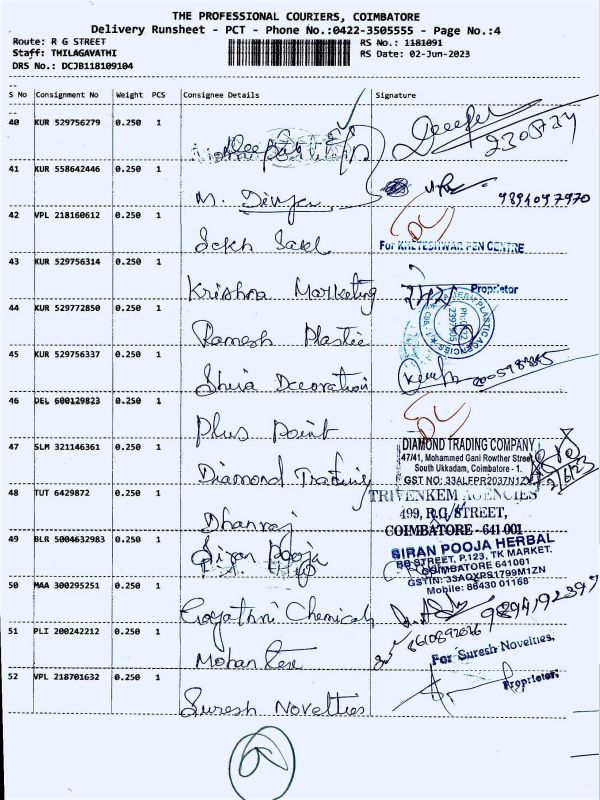 THE PROFESSIONAL COURIERS, COIMBATORE
Delivery Runsheet - PCT - Phone No.:0422-3505555 - Page No.:4
Route: R G STREET
Staff: THILAGAVATHI
DRS No.: DCJB118109104
RS No.: 1181091
RS Date: 02-Jun-2023
S No Consignment No Weight PCS Consignee Details Signature
40 KUR 529756279 0.250 1
41 KUR 558642446 0.250 1
M. Divya
9894097970
42 VPL 218160612 0.250 1
DL
Sekh Said
For KHETESHWAR PEN CENTRE
43 KUR 529756314 0.250 1
Krishna Marketing
Proprietor
44 KUR 529772850 0.250 1
Ramesh Plastic
PLASTIC AGENCIES
45 KUR 529756337 0.250 1
Shiva Decoration
46 DEL 600129823 0.250 1
DL
Plus Point
47 SLM 321146361 0.250 1
Diamond Trading
DIAMOND TRADING COMPANY
47/41, Mohammed Gani Rowther Street
South Ukkadam, Coimbatore - 1.
GST NO: 33ALFPR2037N1Z
2/6/23
48 TUT 6429872 0.250 1
Dhanraj
TRIVENKEM AGENCIES
499, R.G. STREET,
COIMBATORE - 641 001
49 BLR 5004632983 0.250 1
Siran Pooja
SIRAN POOJA HERBAL
BB STREET, P.123, TK MARKET,
COIMBATORE 641001
GSTIN: 33AQXPS1799M1ZN
Mobile: 86430 01168
50 MAA 300295251 0.250 1
Gayathri Chemicals
51 PLI 200242212 0.250 1
Mohan
8610892026
52 VPL 218701632 0.250 1
Suresh Novelties
For Suresh Novelties,
Proprietor.